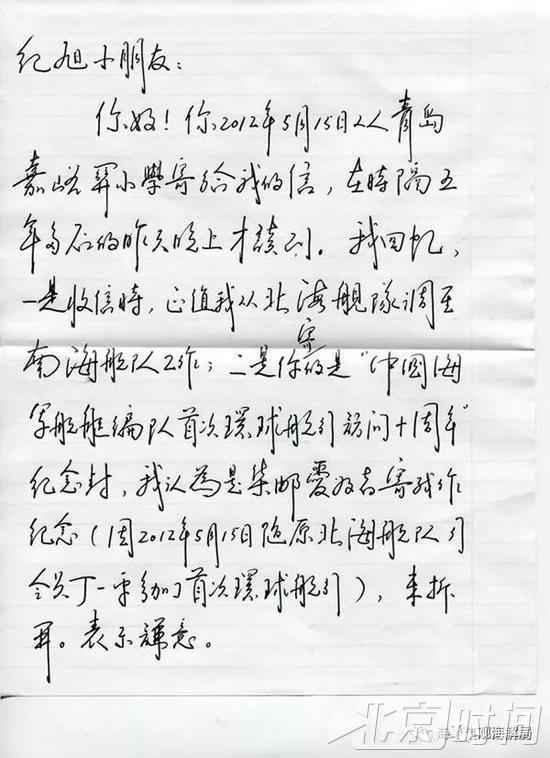 纪旭小朋友：
你好！你2012年5月15日从青岛
嘉峪関小學寄给我的信，在時隔五
年多后的昨天晚上才讀到。我回忆，
一是收信時，正值我从北海舰隊调至
南海舰队工作；二是你寄的是“中國海
军舰艇编队首次環球航行訪问十周年”
纪念封，我认為是集邮爱好者寄我作
纪念（因2012年5月15日随原北海舰队司
令员丁一平参加了首次環球航行），未拆
開。表示歉意。
北京时间
观海解局